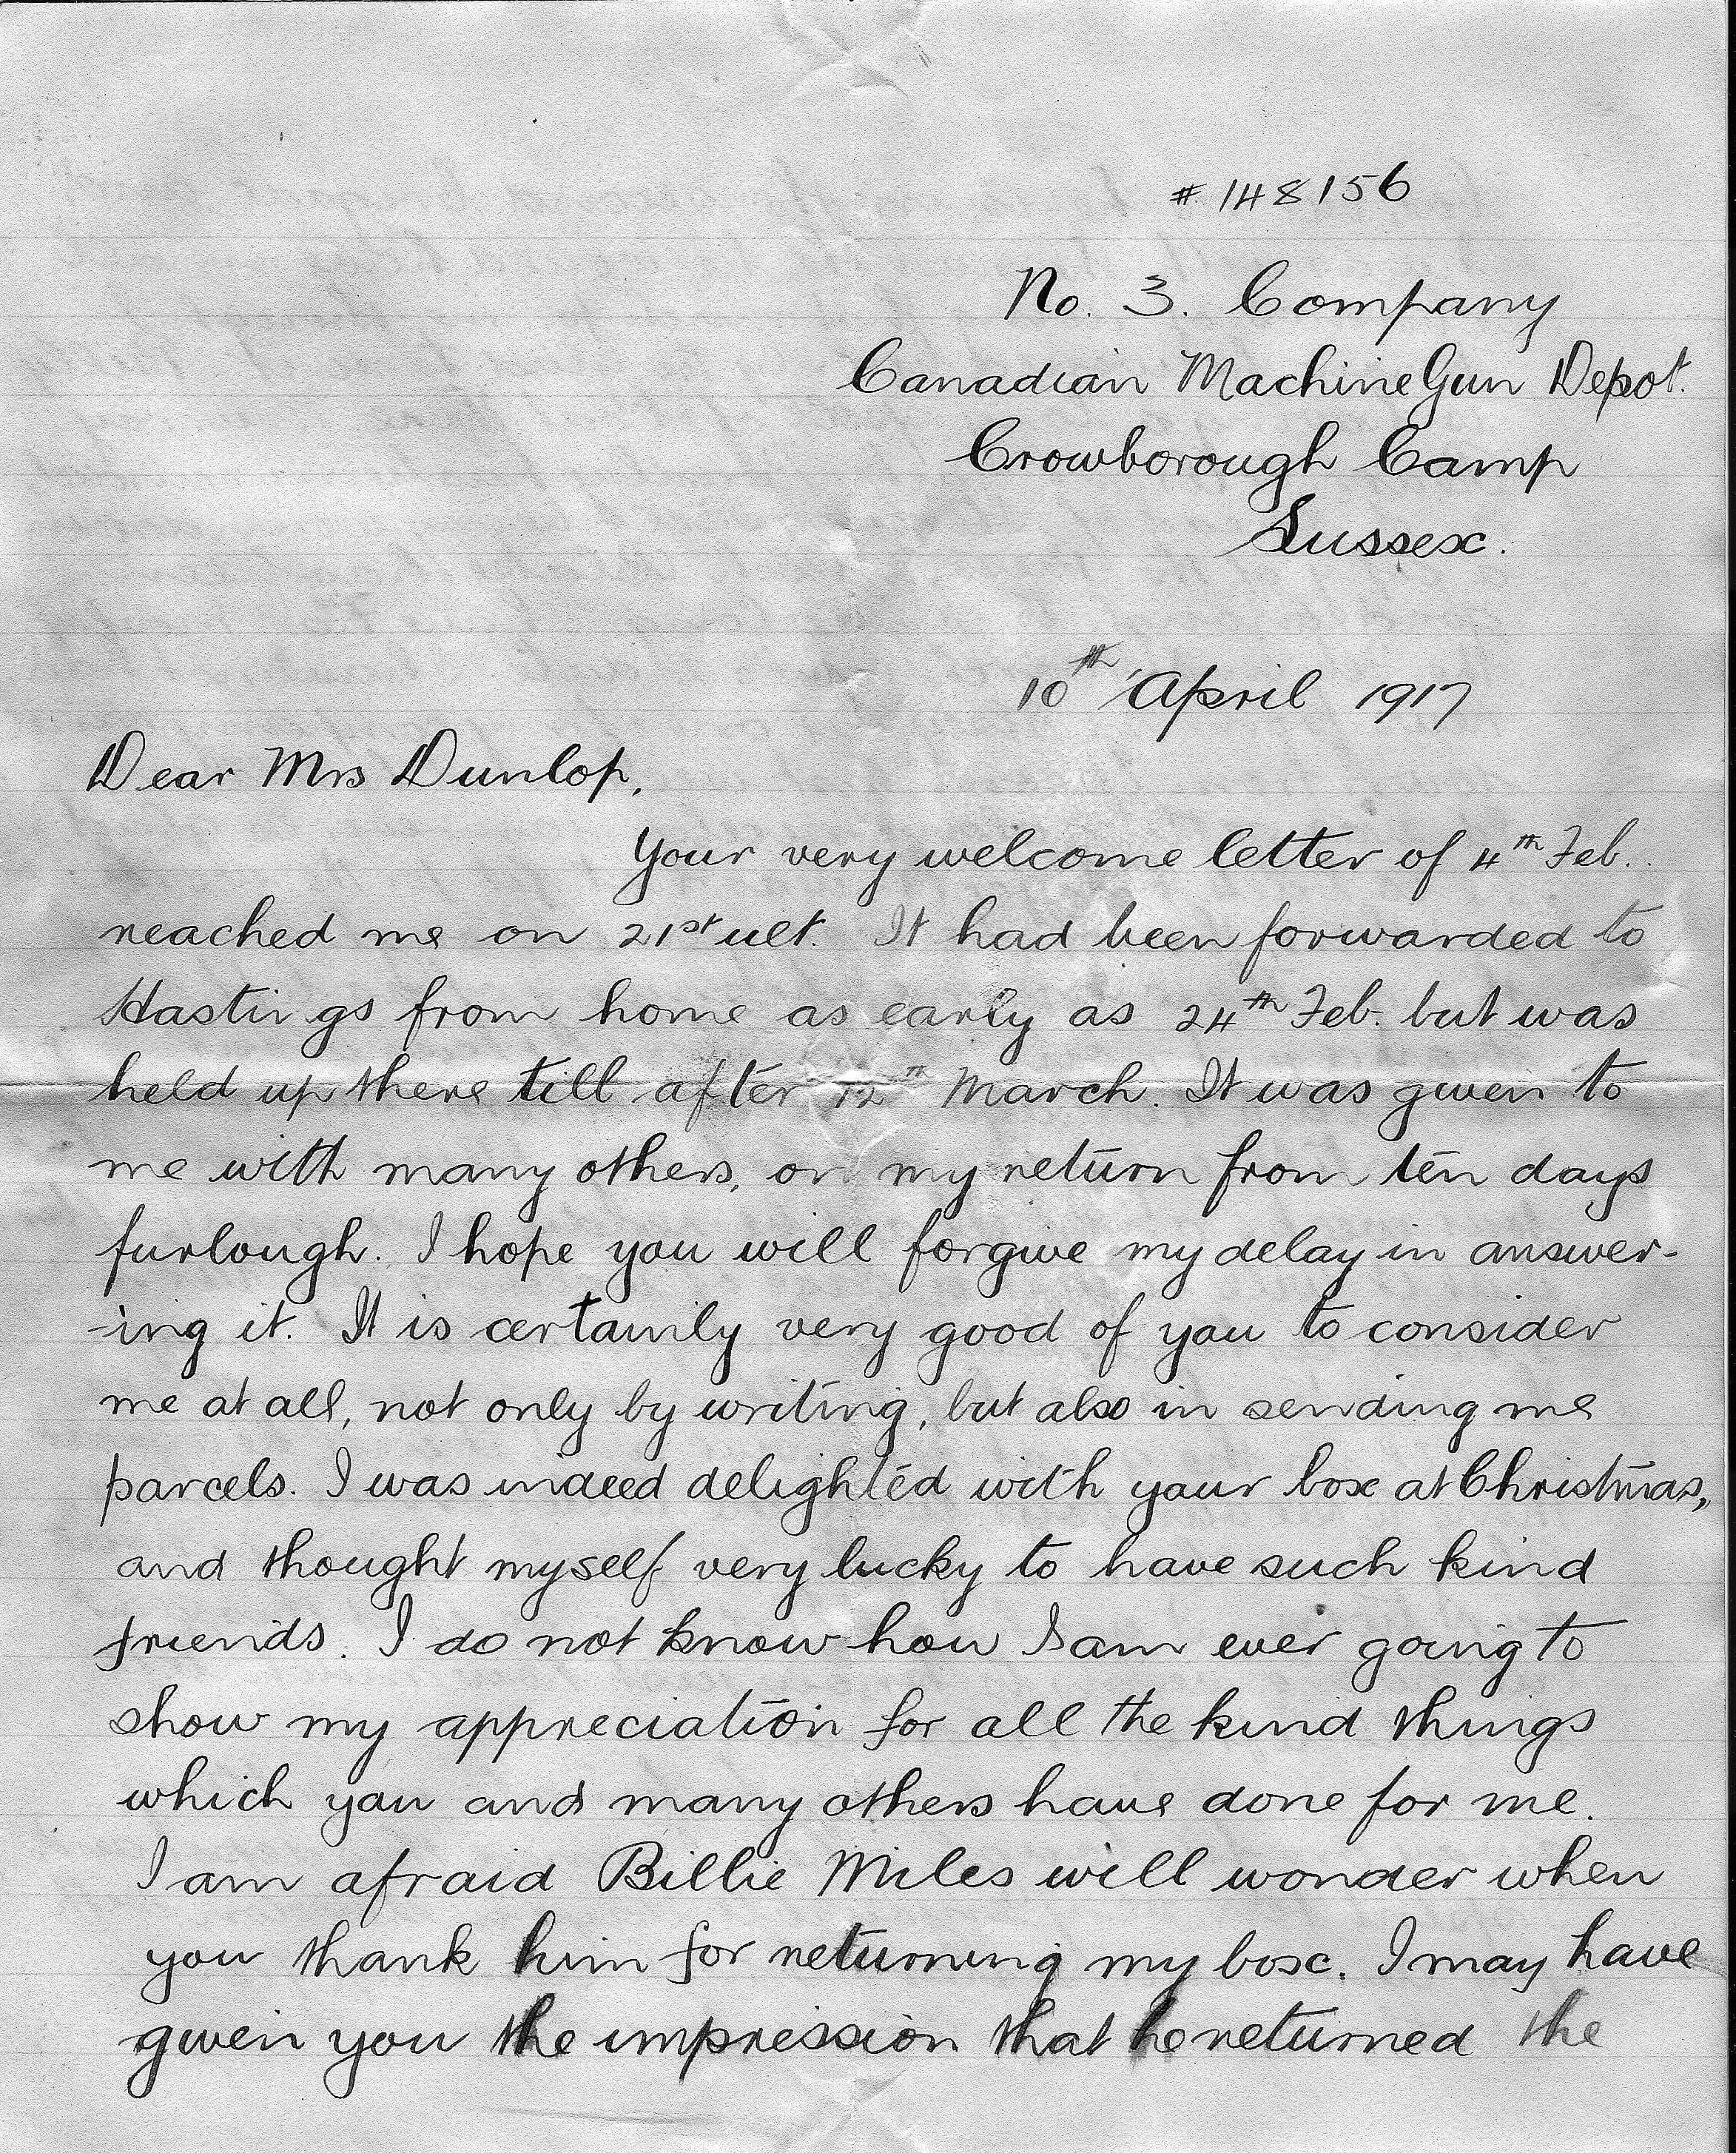 # 148156
No. 3. Company
Canadian Machine Gun Depot.
Crowborough Camp
Sussex.
10th April 1917
Dear Mrs Dunlop,
Your very welcome letter of 4th Feb.
reached me on 21st ult. It had been forwarded to
Hastings from home as early as 24th Feb. but was
held up there till after 12th March. It was given to
me with many others, on my return from ten days
furlough. I hope you will forgive my delay in answer-
-ing it. It is certainly very good of you to consider
me at all, not only by writing, but also in sending me
parcels. I was indeed delighted with your box at Christmas,
and thought myself very lucky to have such kind
friends. I do not know how I am ever going to
show my appreciation for all the kind things
which you and many others have done for me.
I am afraid Billie Miles will wonder when
you thank him for returning my box. I may have
given you the impression that he returned the